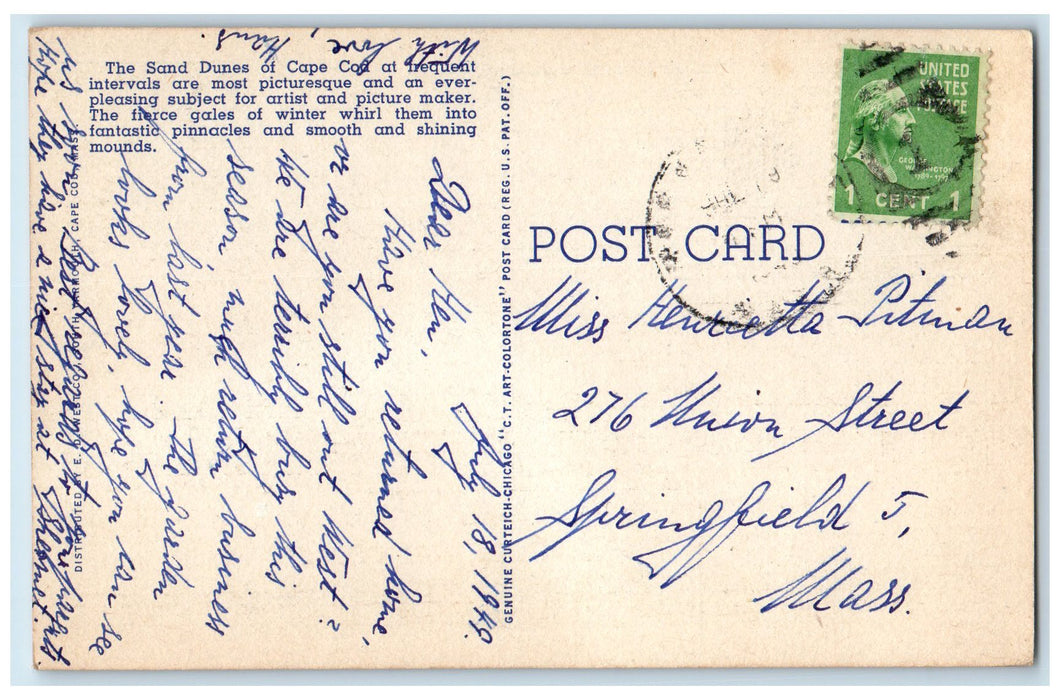 The Sand Dunes of Cape Cod at frequent
intervals are most picturesque and an ever-
pleasing subject for artist and picture maker.
The fierce gales of winter whirl them into
fantastic pinnacles and smooth and shining
mounds.
DISTRIBUTED BY E. D. WEST CO., SOUTH YARMOUTH, CAPE COD, MASS.
July 18, 1949.
Dear Hen,
Have you returned home,
or are you still out West?
We are terribly busy this
season, much return business
from last year. The garden
looks lovely, hope you can see
us soon. Best regards to
Hope they have a nice stay at
With love,
Hans.
GENUINE CURTEICH-CHICAGO "C.T. ART-COLORTONE" POST CARD (REG. U.S. PAT. OFF.)
POST CARD
UNITED
STATES
POSTAGE
GEORGE
WASHINGTON
1789-1797
1 CENT 1
Miss Henrietta Pitman
276 Union Street
Springfield 5,
Mass.